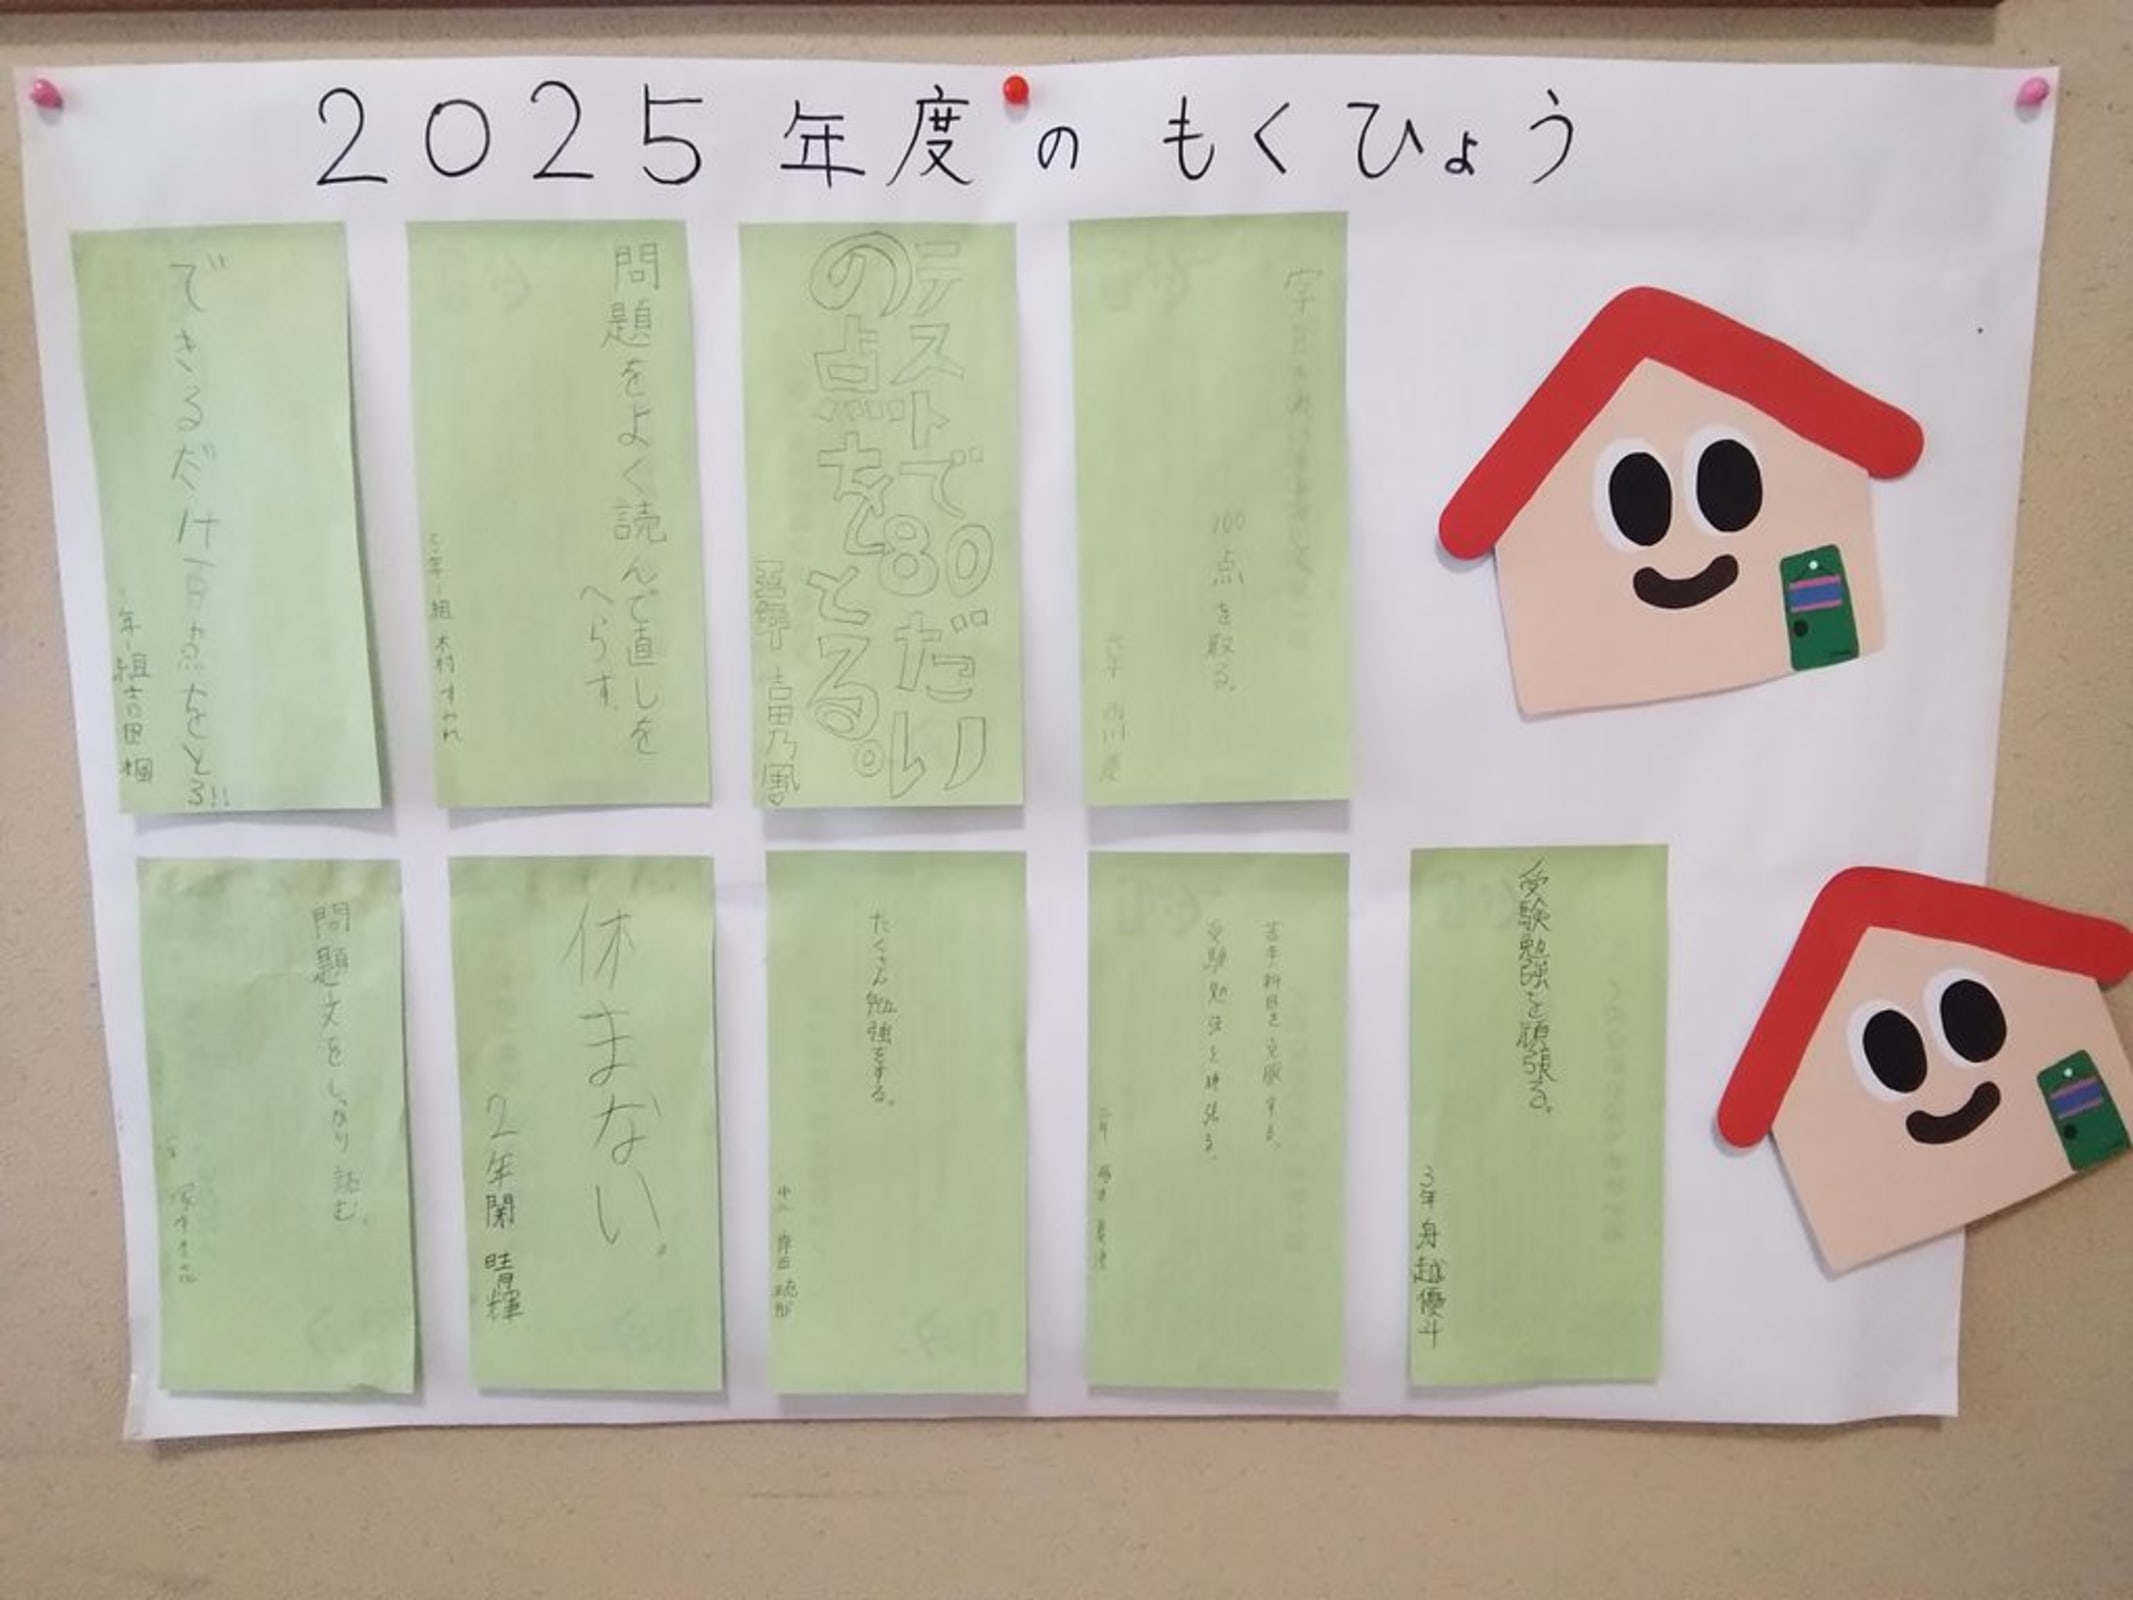 2025年度のもくひょう
できるだけ百点をとる!!
年一組吉田
問題をよく読んで直しを
へらす。
5年一組 木村すみれ
テストで80だい
の点をとる。
五年 吉田乃風
100点を取る。
六年 西川
問題文をしっかり読む。
休まない。
2年関 晴輝
たくさん勉強をする。
岸田
苦手科目を克服する。
受験勉強を頑張る。
受験勉強を頑張る。
3年 舟越優斗